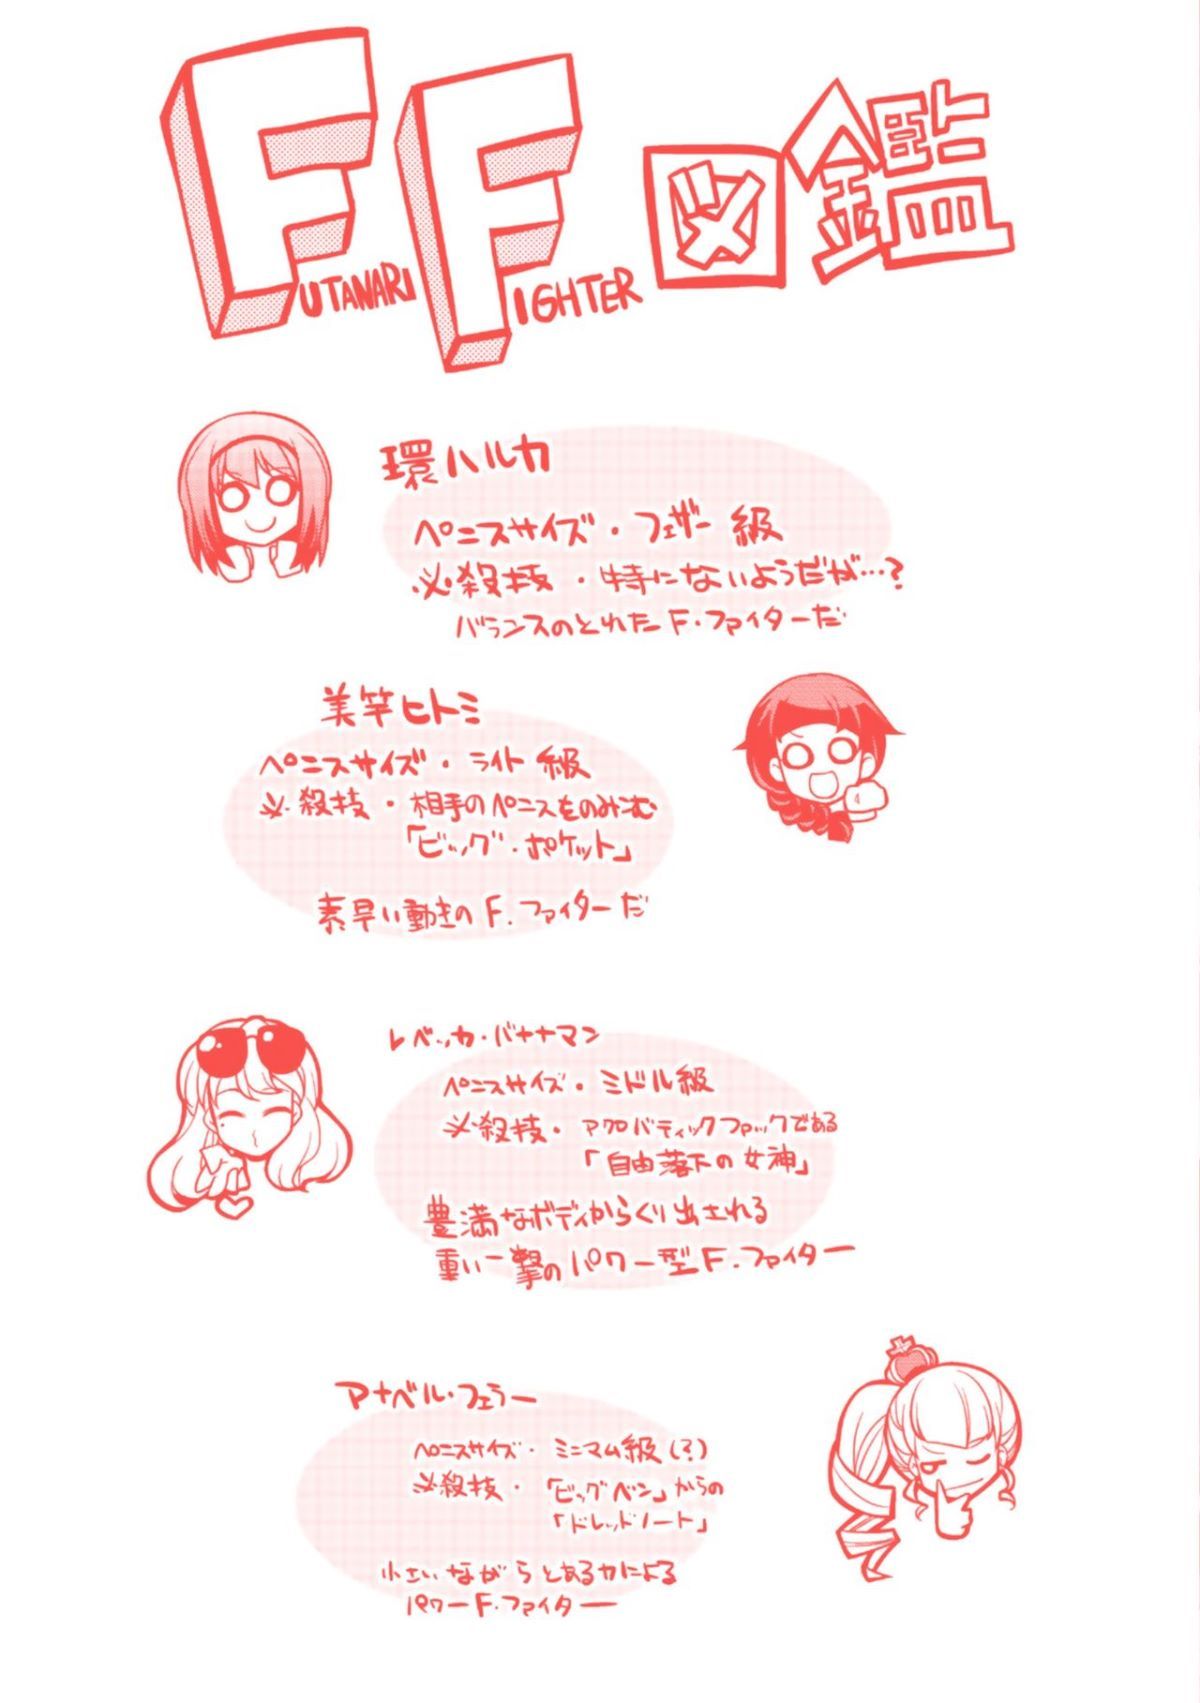 FF図鑑
FUTANARI FIGHTER
環ハルカ
ペニスサイズ・フェザー級
必殺技・特にないようだが…?
バランスのとれたF.ファイターだ
美竿ヒトミ
ペニスサイズ・ライト級
必殺技・相手のペニスをのみこむ
「ビッグ・ポケット」
素早い動きのF.ファイターだ
レベッカ・バナナマン
ペニスサイズ・ミドル級
必殺技・アクロバティックファックである
「自由落下の女神」
豊満なボディからくり出される
重い一撃のパワー型F.ファイター
アナベル・フェラー
ペニスサイズ・ミニマム級(?)
必殺技・「ビッグベン」からの
「ドレッドノート」
小さいながらとある力による
パワーF.ファイター